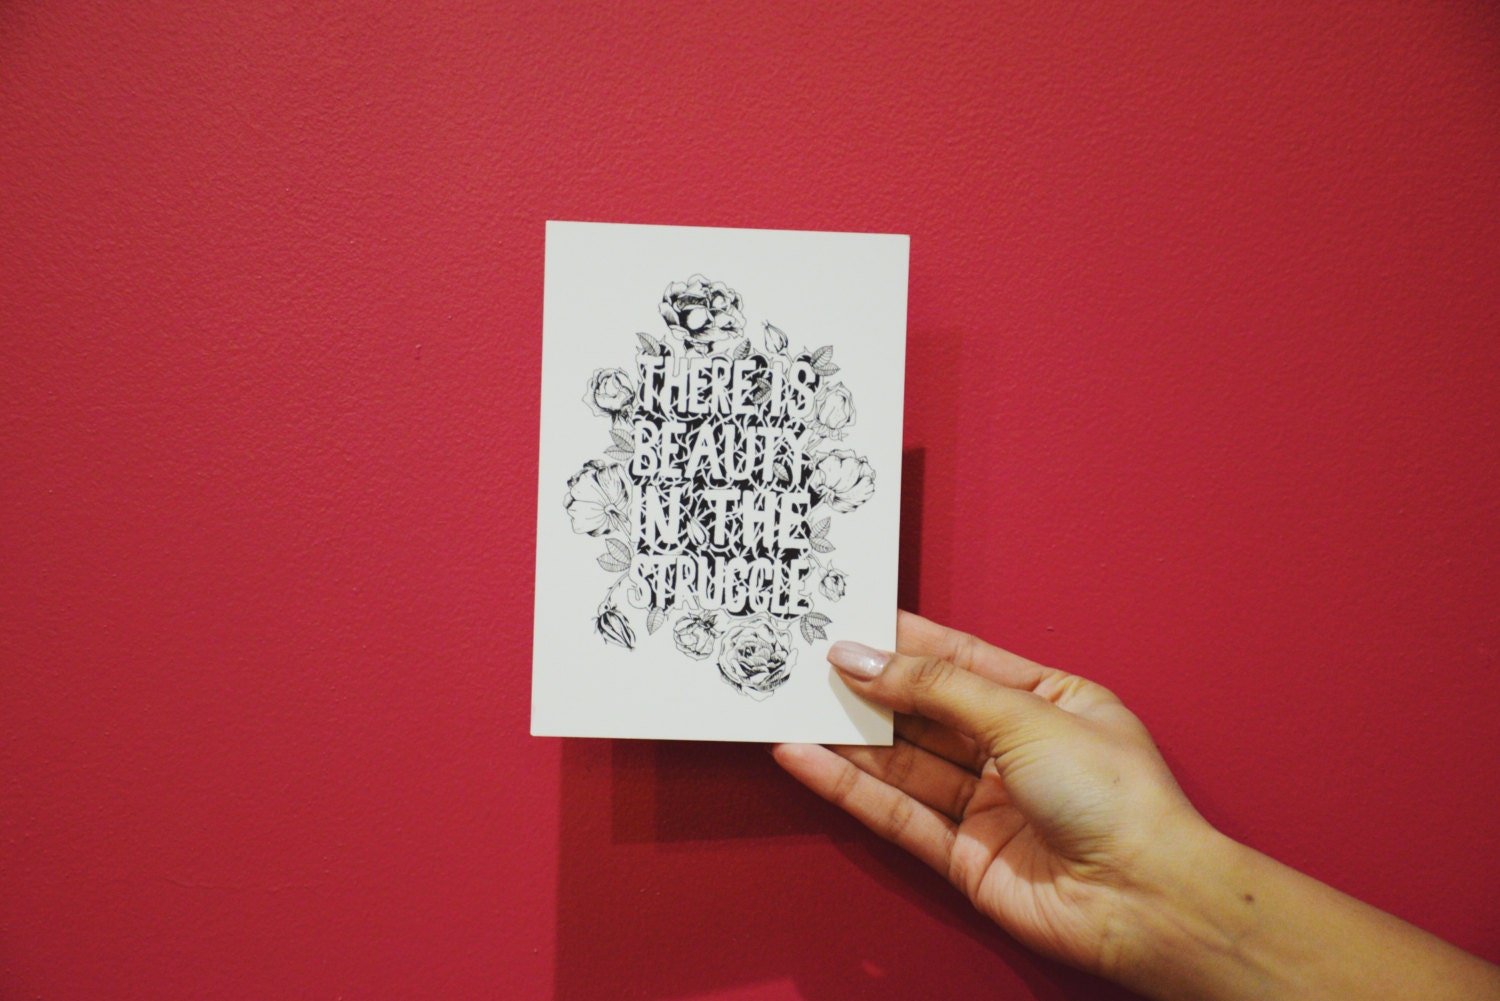 THERE IS
BEAUTY
IN THE
STRUGGLE